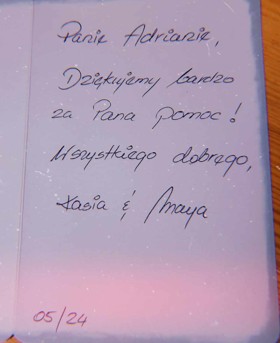 Panie Adrianie,
Dziękujemy bardzo
za Pana pomoc!
Wszystkiego dobrego,
Kasia & Maya
05/24